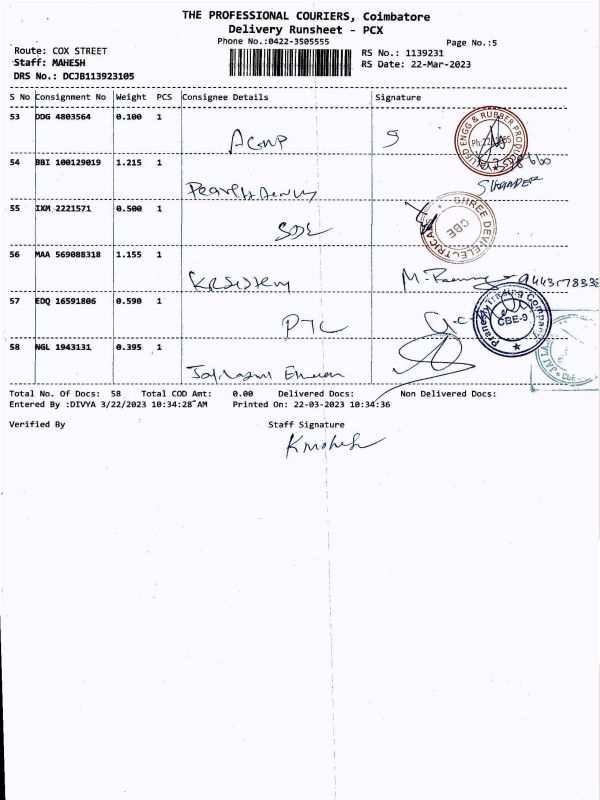 THE PROFESSIONAL COURIERS, Coimbatore
Delivery Runsheet - PCX
Phone No.:0422-3505555
Page No.:5
Route: COX STREET
RS No.: 1139231
Staff: MAHESH
RS Date: 22-Mar-2023
DRS No.: DCJB113923105
S No Consignment No Weight PCS Consignee Details Signature
53 DDG 4803564 0.100 1
54 BBI 100129019 1.215 1
SUNDER
55 IXM 2221571 0.500 1
SHREE DEVI ELECTRICALS
CBE
56 MAA 569088318 1.155 1
57 EDQ 16591806 0.590 1
PTC
Pranety Trading Company
CBE-9
58 NGL 1943131 0.395 1
Total No. Of Docs: 58 Total COD Amt: 0.00 Delivered Docs: Non Delivered Docs:
Entered By :DIVYA 3/22/2023 10:34:28 AM Printed On: 22-03-2023 10:34:36
Verified By Staff Signature